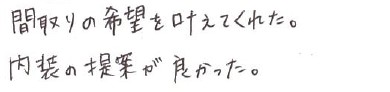 間取りの希望を叶えてくれた。
内装の提案が良かった。